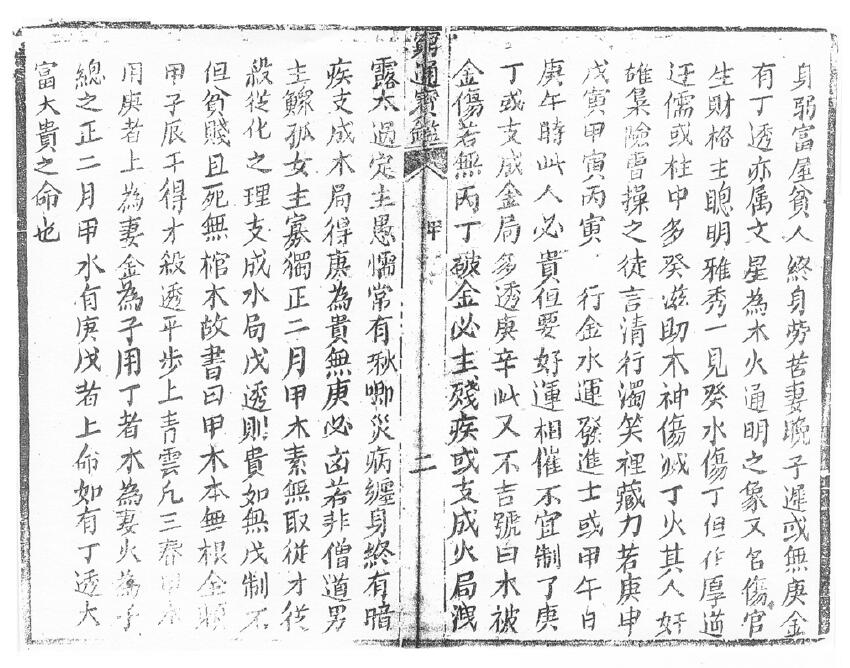 身弱富屋貧人終身勞苦妻晚子遲或無庚金
有丁透亦属文星為木火通明之象又名傷官
生財格主聰明雅秀一見癸水傷丁但作厚道
迂儒或柱中多癸滋助木神傷滅丁火其人奸
雄梟險曹操之徒言清行濁笑裡藏刀若庚申
戊寅甲寅丙寅 行金水運發進士或甲午日
庚午時此人必貴但要好運相催不宜制了庚
丁或支成金局多透庚辛此又不吉號曰木被
金傷若無丙丁破金必主殘疾或支成火局洩
窮通寶鑑 甲 二
露太過定主愚懦常有啾唧災病纏身終有暗
疾支成木局得庚為貴無庚必凶若非僧道男
主鰥孤女主寡獨正二月甲木素無取從才從
殺從化之理支成水局戊透則貴如無戊制不
但貧賤且死無棺木故書曰甲木本無根全賴
甲子辰干得才殺透平步上青雲凡三春甲木
用庚者土為妻金為子用丁者木為妻火為子
總之正二月甲木有庚戊者上命如有丁透大
富大貴之命也